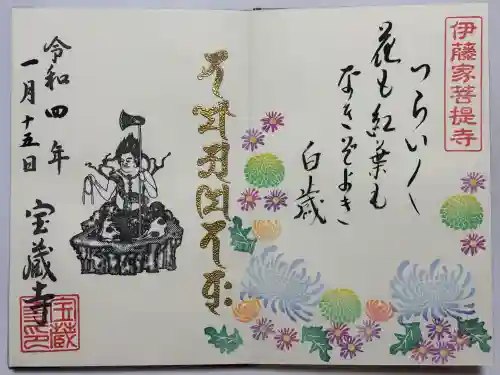 伊藤家菩提寺
つらい〳〵
花も紅葉も
なきぞよき
白歳
令和四年
一月十五日
宝蔵寺
宝蔵
寺印